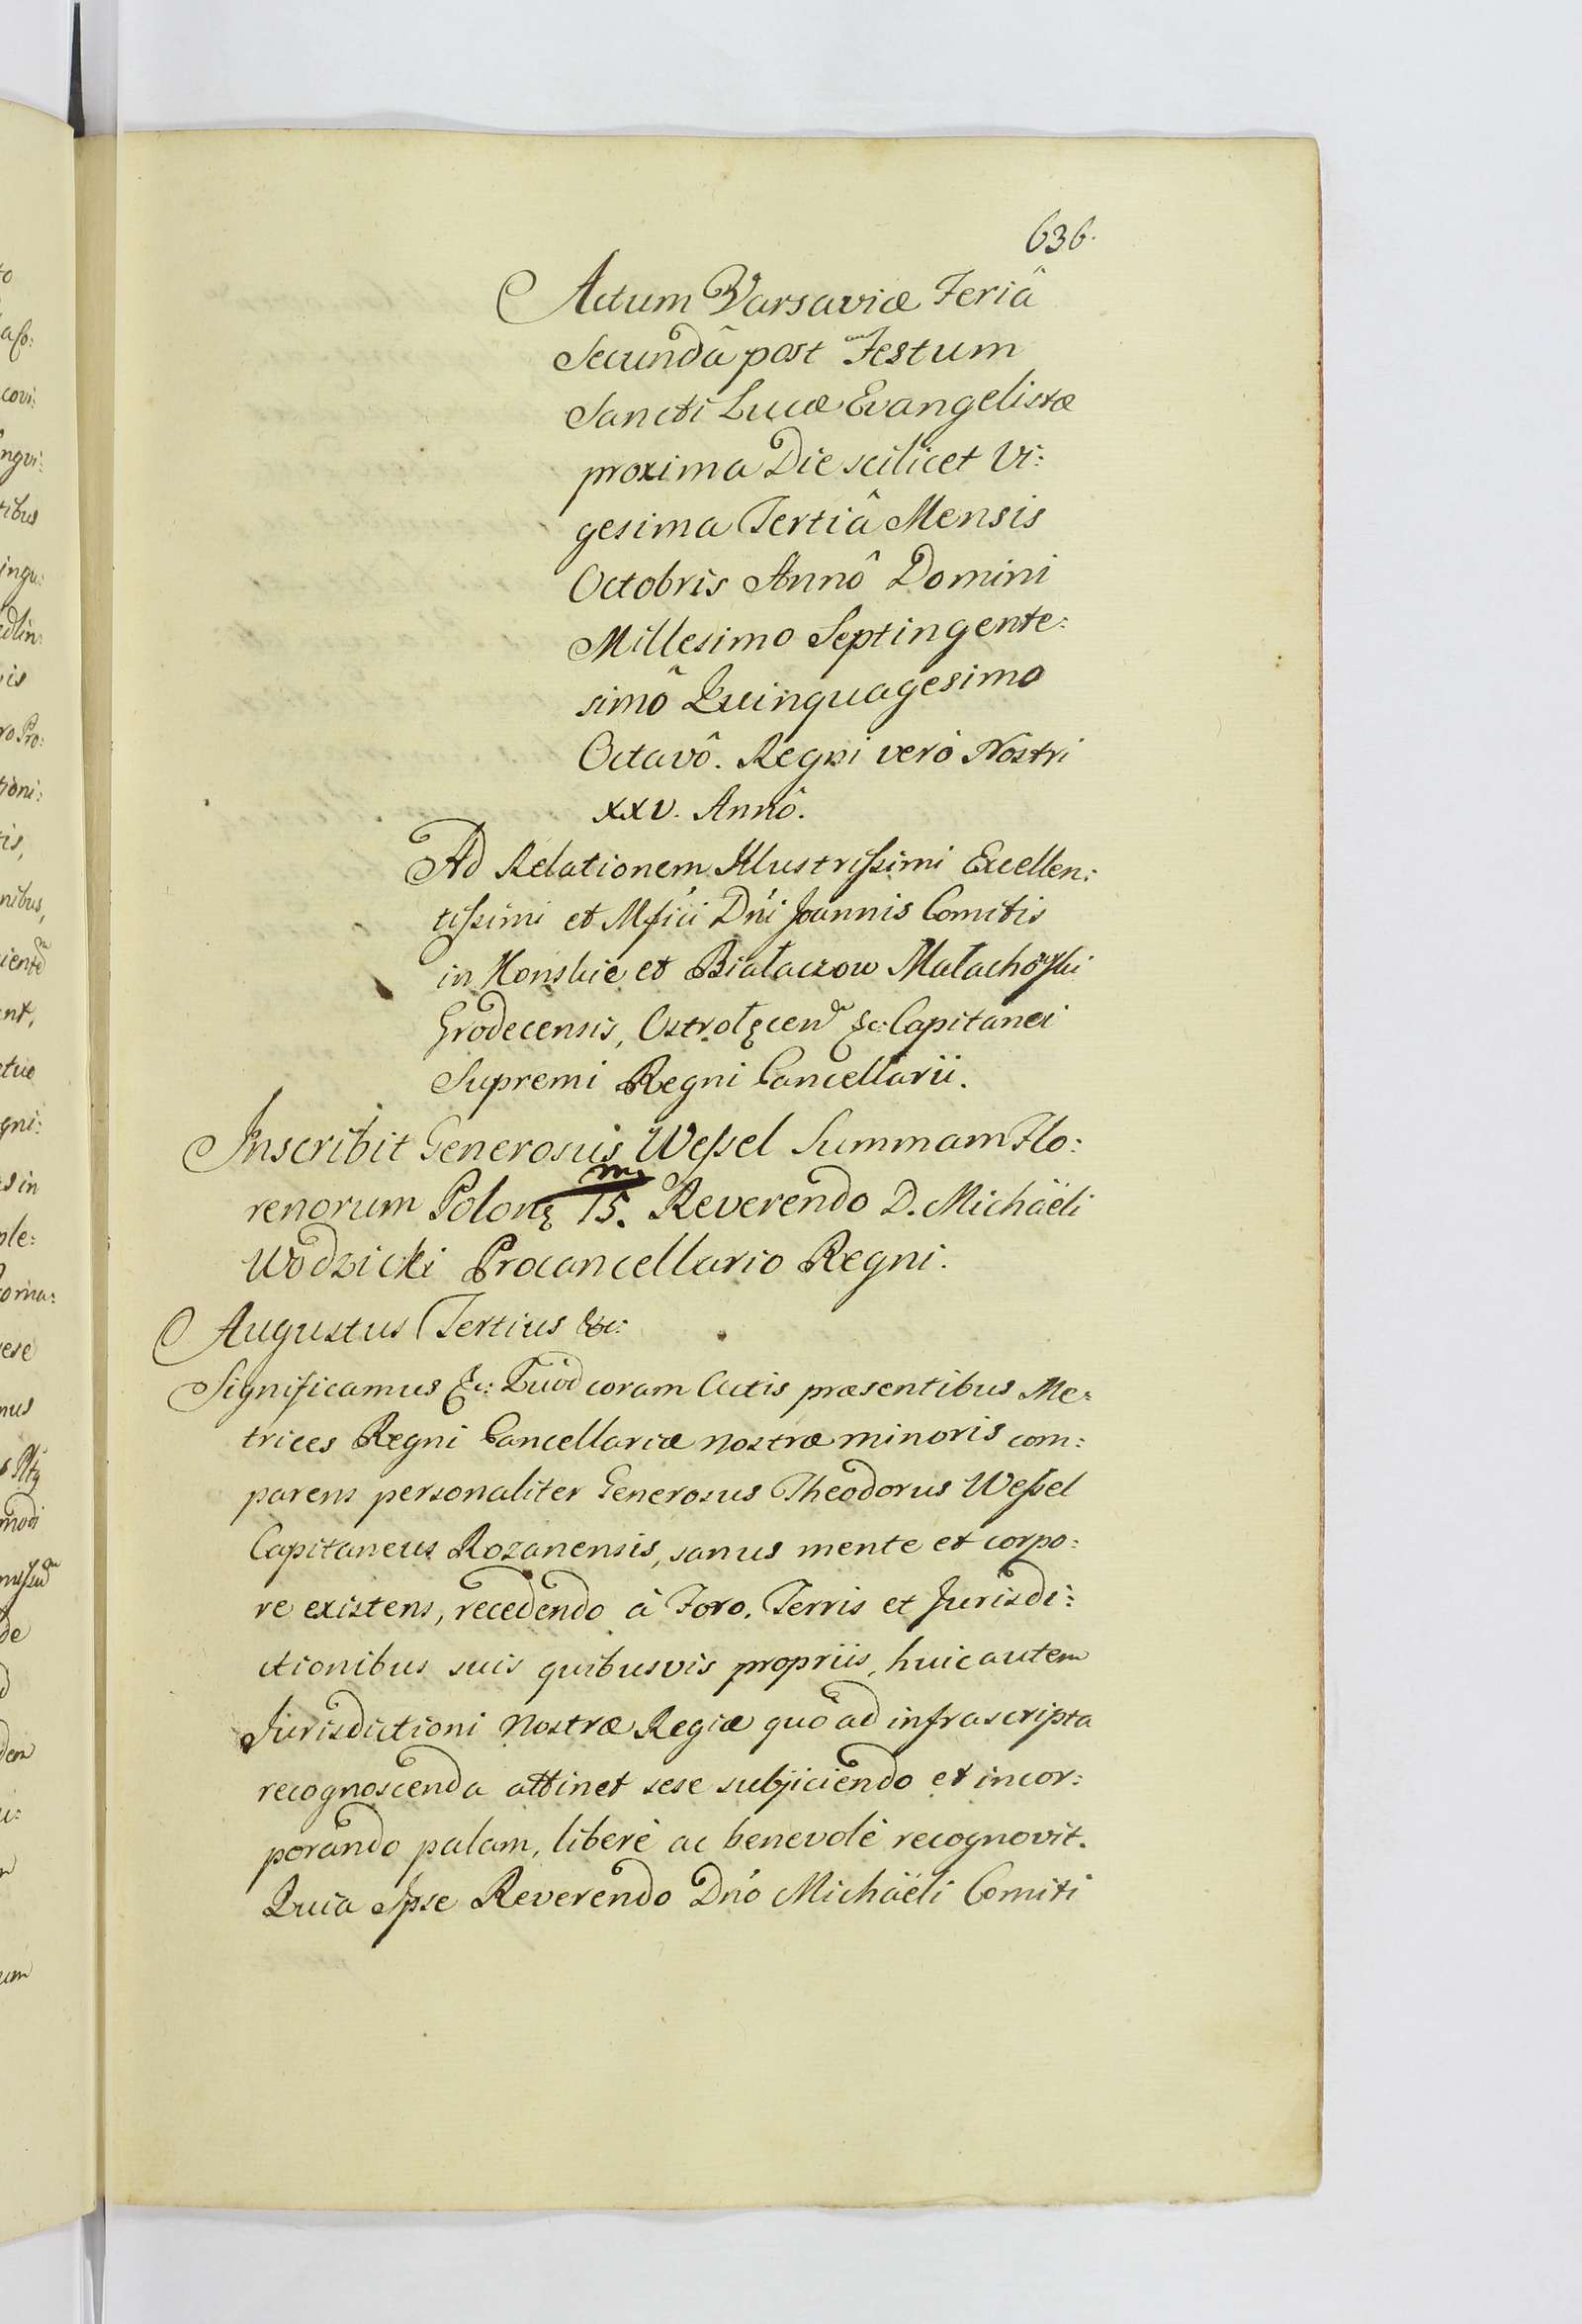 636.
Actum Varsaviæ Feriâ
Secundâ post Festum
Sancti Lucæ Evangelistæ
proxima Die scilicet Vi:
gesima Tertiâ Mensis
Octobris Annô Domini
Millesimo Septingente:
simô Quinquagesimo
Octavô. Regni verò Nostri
XXV. Annô.
Ad Relationem Illustrissimi Excellen:
tissimi et Mfici Dni Joannis Comitis
in Konskie et Białaczow Małachowski
Grodecensis, Ostrołęcen &c: Capitanei
Supremi Regni Cancellarii.
Inscribit Generosus Wessel Summam Flo:
renorum Polonę 15.m Reverendo D. Michaëli
Wodzicki Procancellario Regni.
Augustus Tertius &c:
Significamus &c: Quod coram Actis præsentibus Me:
trices Regni Cancellariæ nostræ minoris com:
parens personaliter Generosus Theodorus Wessel
Capitaneus Rozanensis, sanus mente et corpo:
re existens, recedendo à Foro, Terris et Jurisdi:
ctionibus suis quibusvis propriis, huic autem
Jurisdictioni Nostræ Regiæ quo ad infrascripta
recognoscenda attinet sese subjiciendo et incor:
porando palam, liberè ac benevolè recognovit.
Quia Ipse Reverendo Dno Michaëli Comiti